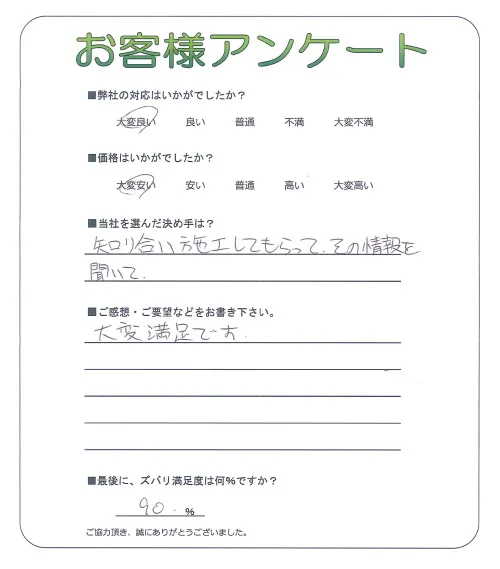 お客様アンケート
■弊社の対応はいかがでしたか？
大変良い 良い 普通 不満 大変不満
■価格はいかがでしたか？
大変安い 安い 普通 高い 大変高い
■当社を選んだ決め手は？
知り合い施工してもらって、その情報を
聞いて.
■ご感想・ご要望などをお書き下さい。
大変満足です.
■最後に、ズバリ満足度は何％ですか？
90. ％
ご協力頂き、誠にありがとうございました。